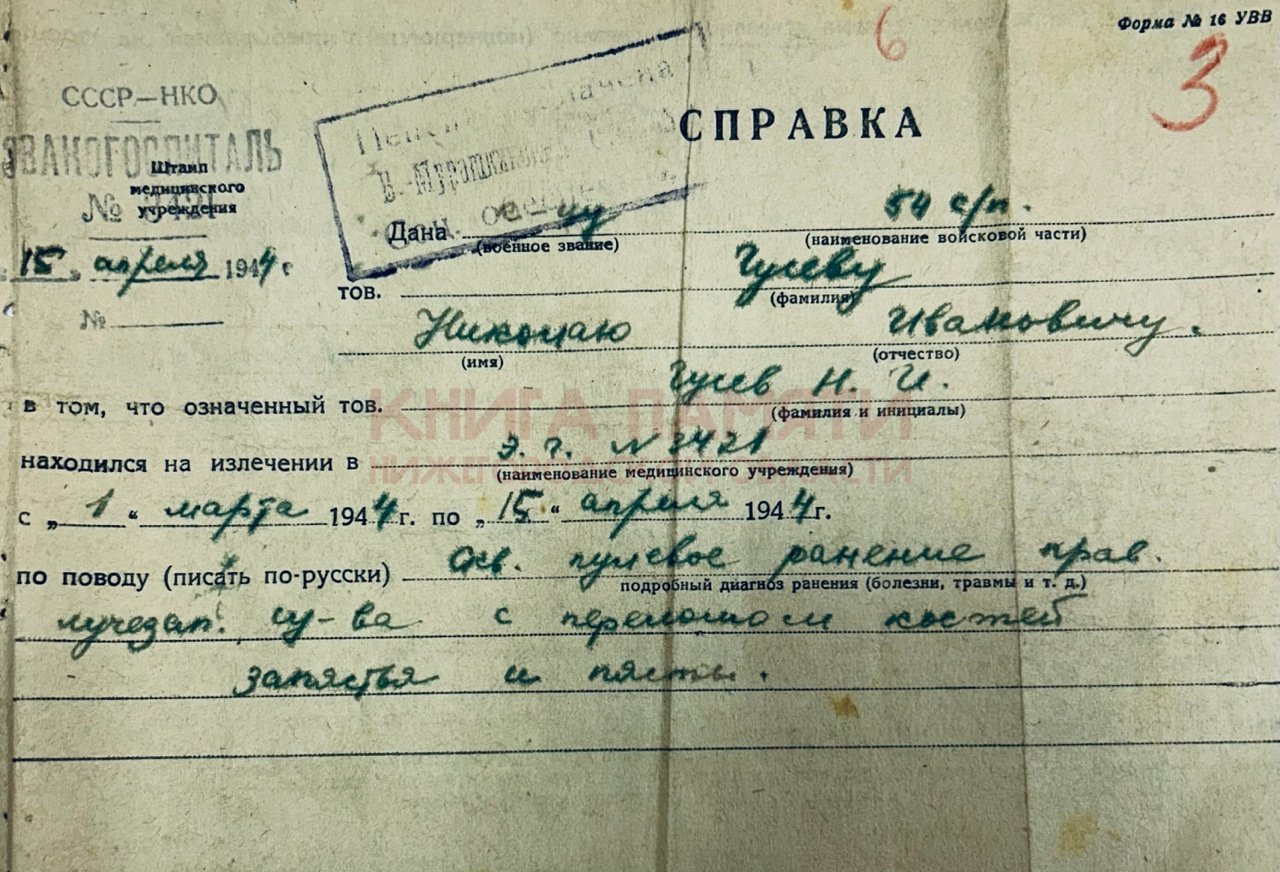 Форма № 16 УВВ
6
3
СССР—НКО
ЭВАКОГОСПИТАЛЬ
№
Штамп
медицинского
учреждения
СПРАВКА
"15" апреля 1944 г
№
Дана 54 с/п.
(военное звание) (наименование войсковой части)
тов. Гусеву
(фамилия)
Николаю Ивановичу.
(имя) (отчество)
в том, что означенный тов. Гусев Н. И.
(фамилия и инициалы)
находился на излечении в э. г. N 3421
(наименование медицинского учреждения)
с „1“ марта 1944 г. по „15“ апреля 1944 г.
по поводу (писать по-русски) Скв. пулевое ранение прав.
подробный диагноз ранения (болезни, травмы и т. д.)
лучезап. су-ва с переломом костей
запястья и пясты.
КНИГА ПАМЯТИ
НИЖЕГОРОДСКОЙ ОБЛАСТИ